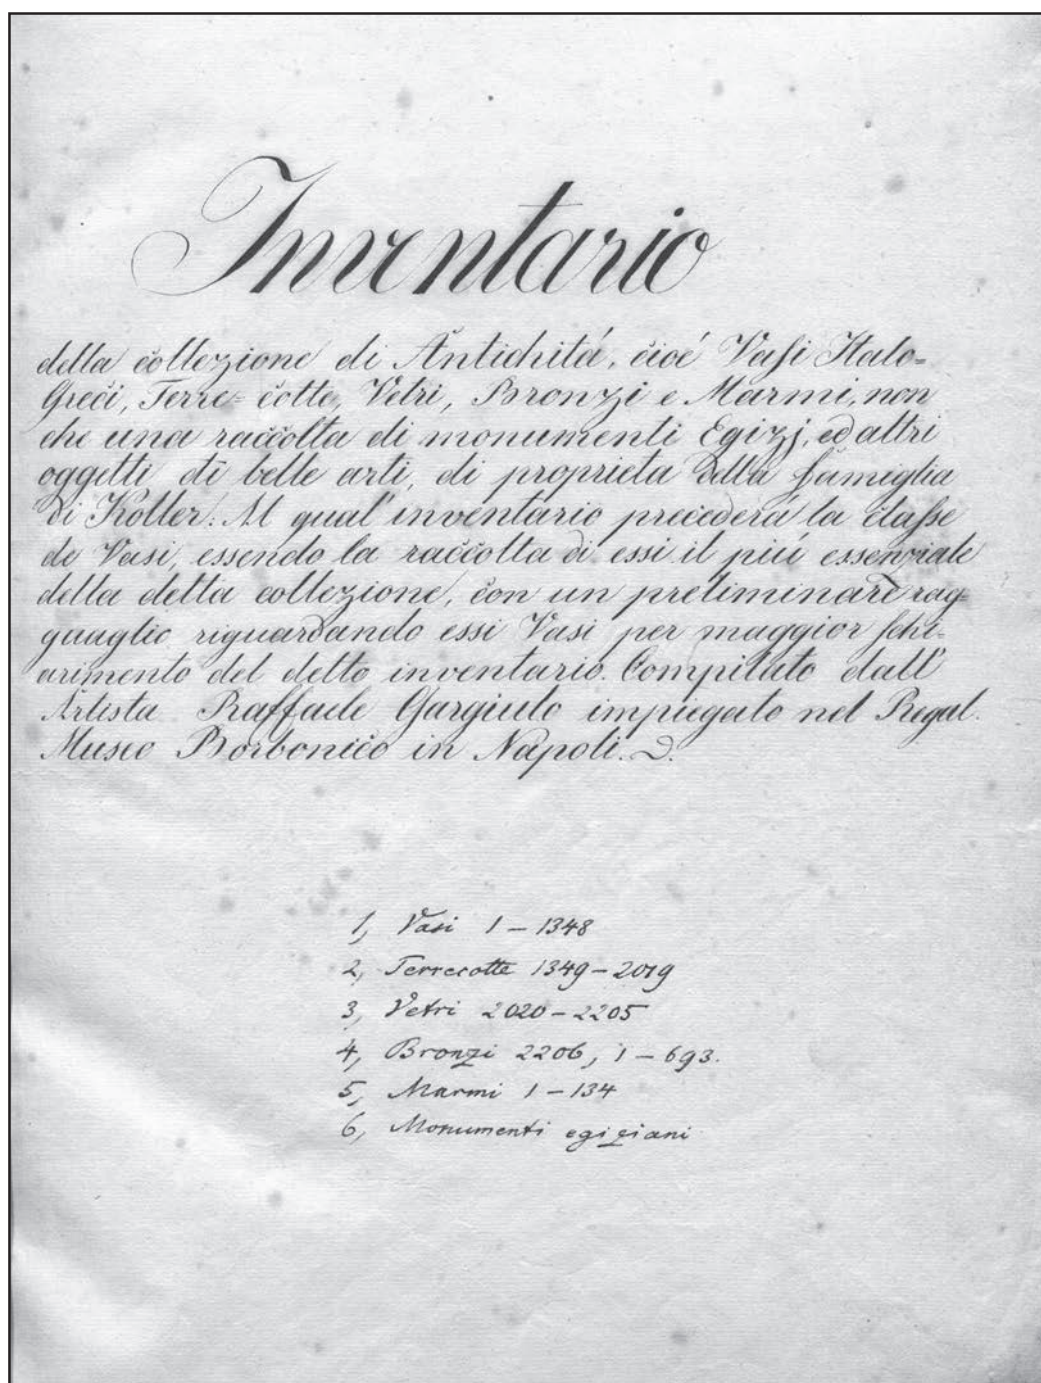 Inventario
della collezione di Antichitá, cioé Vasi Italo-
Greci, Terre-cotte, Vetri, Bronzi e Marmi, non
che una raccolta di monumenti Egizj, ed altri
oggetti di belle arti, di proprieta della famiglia
di Koller. Al qual' inventario precederá la classe
de Vasi, essendo la raccolta di essi il piú essenziale
della detta collezione, con un preliminare rag-
guaglio riguardando essi Vasi per maggior schi-
arimento del detto inventario. Compilato dall'
Artista Raffaele Gargiulo impiegato nel Regal.
Museo Borbonico in Napoli.
1, Vasi 1 – 1348
2, Terrecotte 1349 – 2019
3, Vetri 2020 – 2205
4, Bronzi 2206, 1 – 693.
5, Marmi 1 – 134
6, Monumenti egiziani